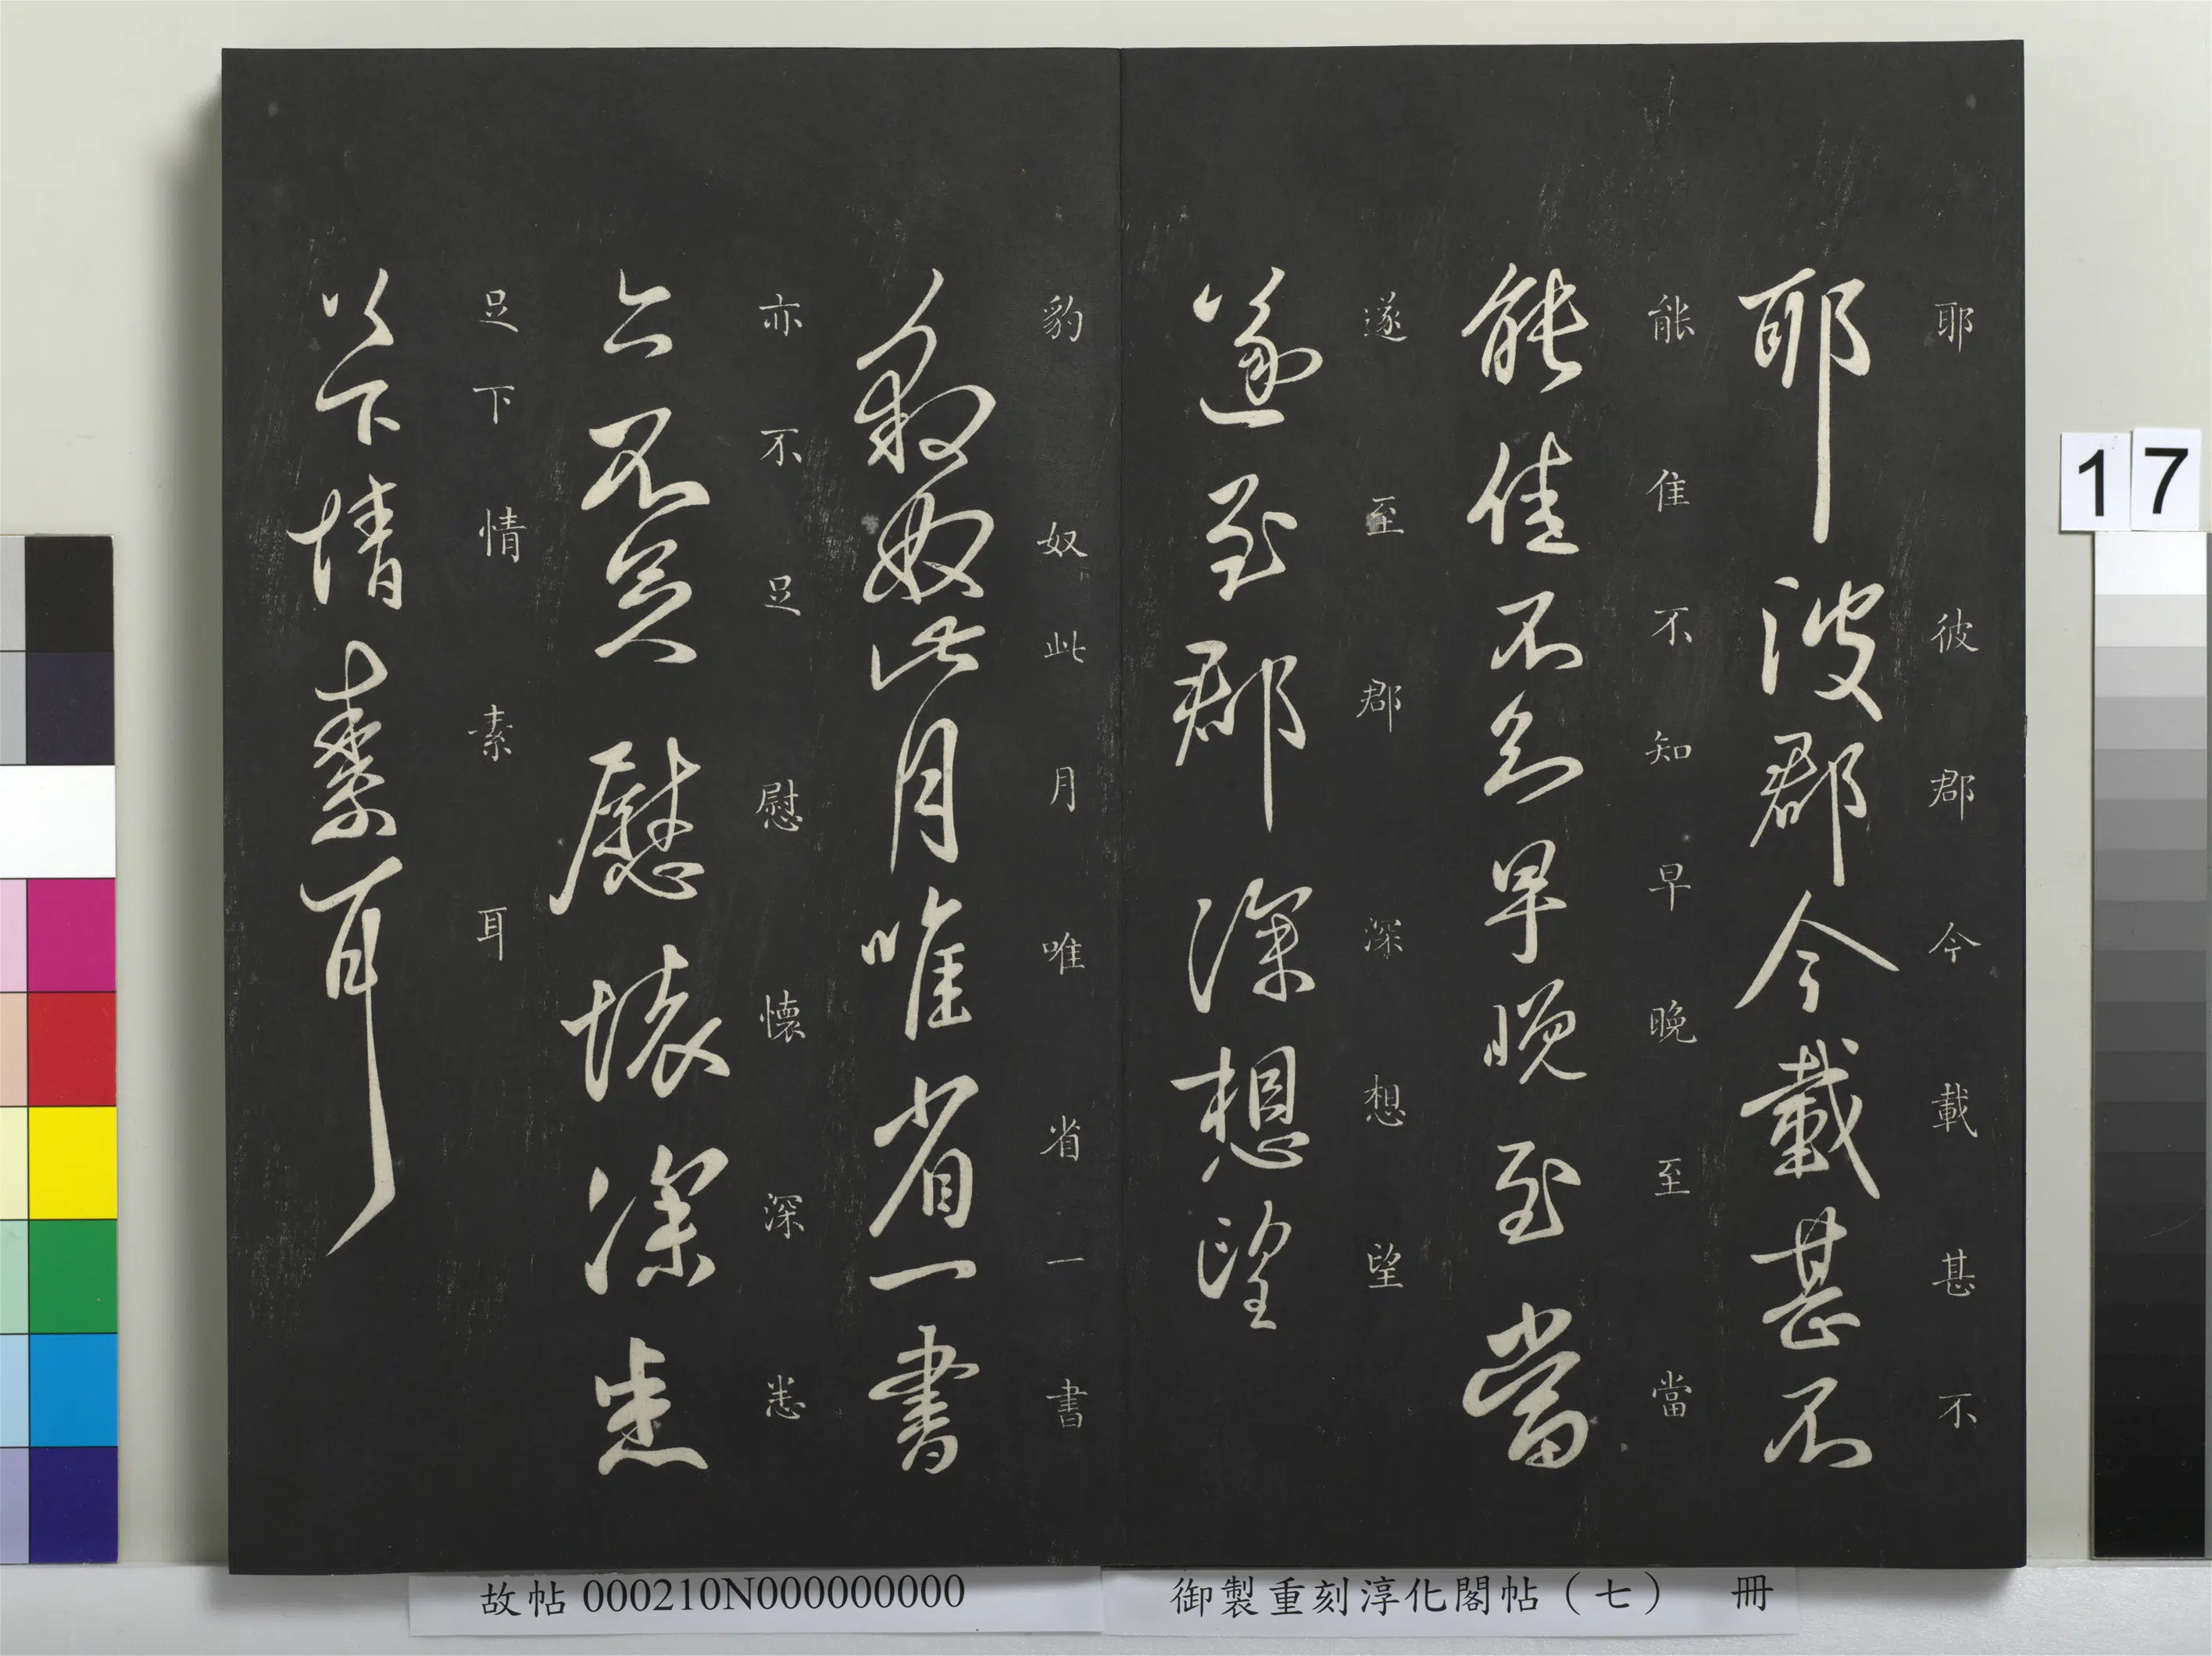 耶彼郡今載甚不
耶彼郡今載甚不
能佳不知早晚至當
能佳不知早晚至當
遂至郡深想望
遂至郡深想望
豹奴此月唯省一書
豹奴此月唯省一書
亦不足慰懷深恙
亦不足慰懷深恙
足下情素耳
足下情素耳
17
御製重刻淳化閣帖（七） 冊
故帖 000210N000000000